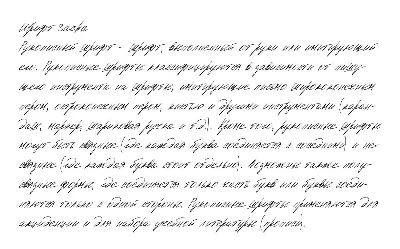 Шрифт Заева
Рукописный шрифт - шрифт, выполненный от руки или имитирующий
ею. Рукописные шрифты классифицируются в зависимости от пишу-
щего инструмента на шрифты, имитирующие письмо ширококонечным
пером, остроконечным пером, кистью и другими инструментами (каран-
даш, маркер, шариковая ручка и т.д.). Кроме того, рукописные шрифты
могут быть связные (где каждая буква соединяется с соседней) и не-
связные (где каждая буква стоит отдельно). Возможны также полу-
связные формы, где соединяется только часть букв или буквы соеди-
няются только с одной стороны. Рукописные шрифты применяются для
акциденции и для набора учебной литературы (прописи).